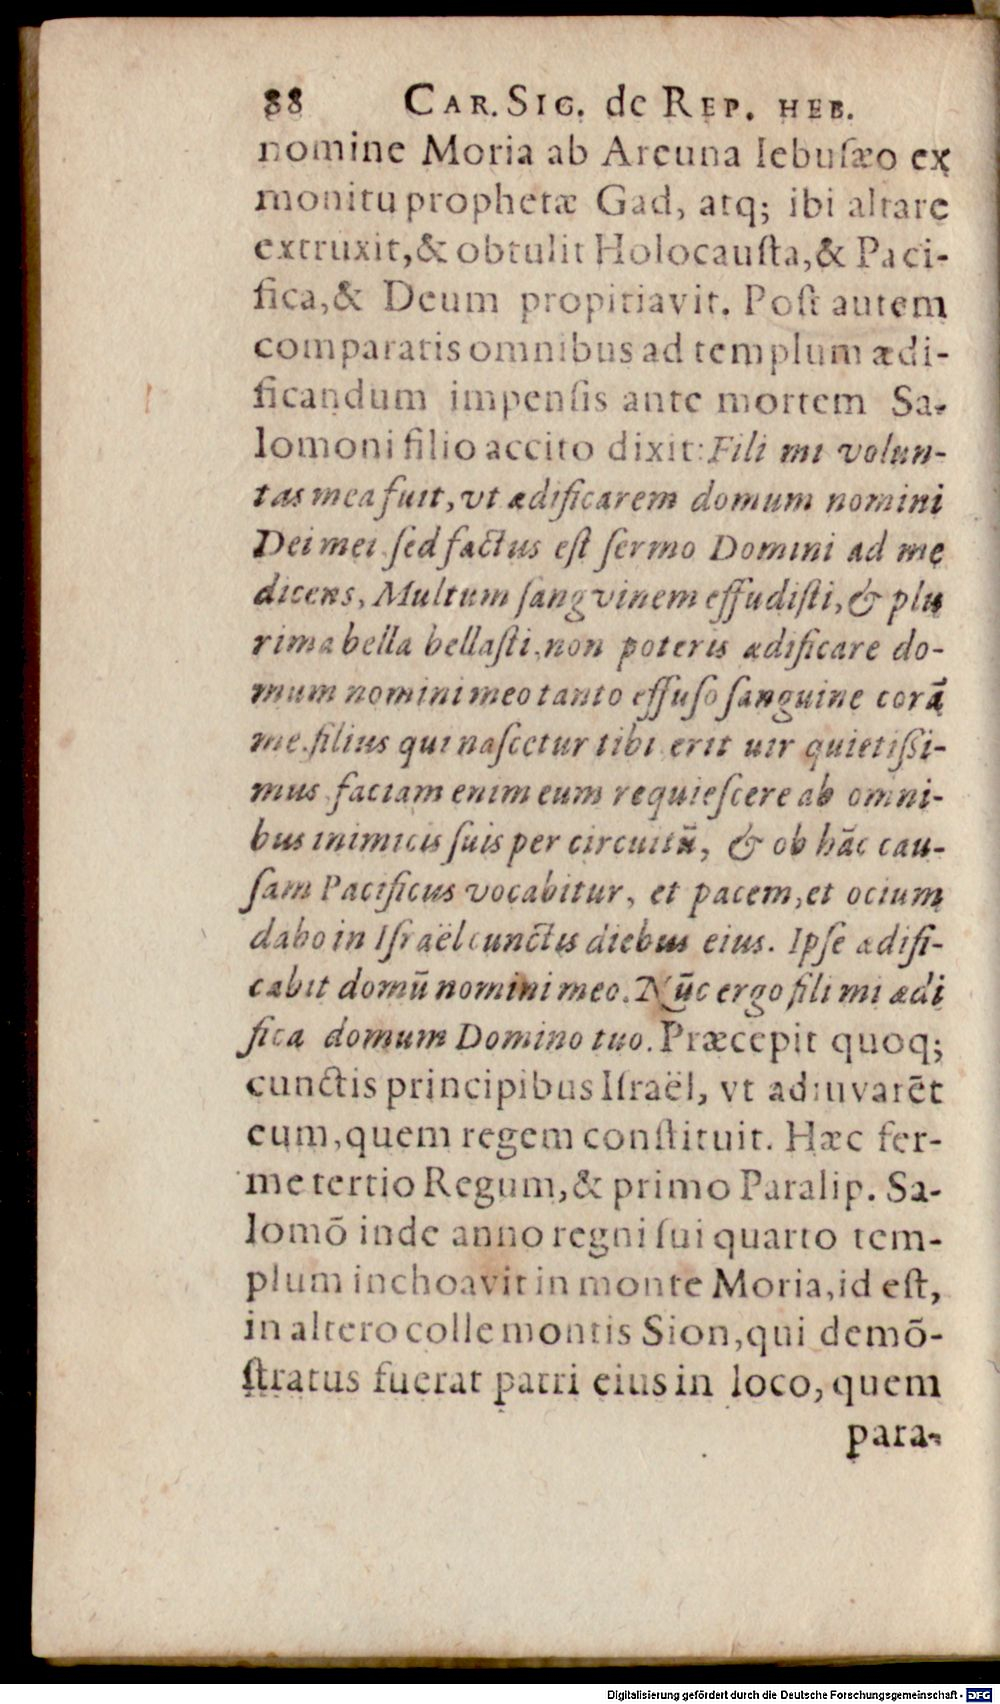 88 CAR. SIG. de REP. HEB.
nomine Moria ab Areuna Iebuſæo ex
monitu prophetæ Gad, atq; ibi altare
extruxit, & obtulit Holocauſta, & Paci-
fica, & Deum propitiavit. Poſt autem
comparatis omnibus ad templum ædi-
ficandum impenſis ante mortem Sa-
lomoni filio accito dixit: Fili mi volun-
tas mea fuit, vt ædificarem domum nomini
Dei mei. ſed factus eſt ſermo Domini ad me
dicens, Multum ſangvinem effudiſti, & plu
rima bella bellaſti, non poteris ædificare do-
mum nomini meo tanto effuſo ſanguine corã
me. filius qui naſcetur tibi erit uir quietiſſi-
mus faciam enim eum requieſcere ab omni-
bus inimicis ſuis per circuitũ, & ob hãc cau-
ſam Pacificus vocabitur, et pacem, et ocium
dabo in Iſraël cunctis diebus eius. Ipſe ædifi-
cabit domũ nomini meo. Nũc ergo fili mi ædi
fica domum Domino tuo. Præcepit quoq;
cunctis principibus Iſraël, vt adiuvarẽt
eum, quem regem conſtituit. Hæc fer-
me tertio Regum, & primo Paralip. Sa-
lomõ inde anno regni ſui quarto tem-
plum inchoavit in monte Moria, id eſt,
in altero colle montis Sion, qui demõ-
ſtratus fuerat patri eius in loco, quem
para-
Digitalisierung gefördert durch die Deutsche Forschungsgemeinschaft - DFG